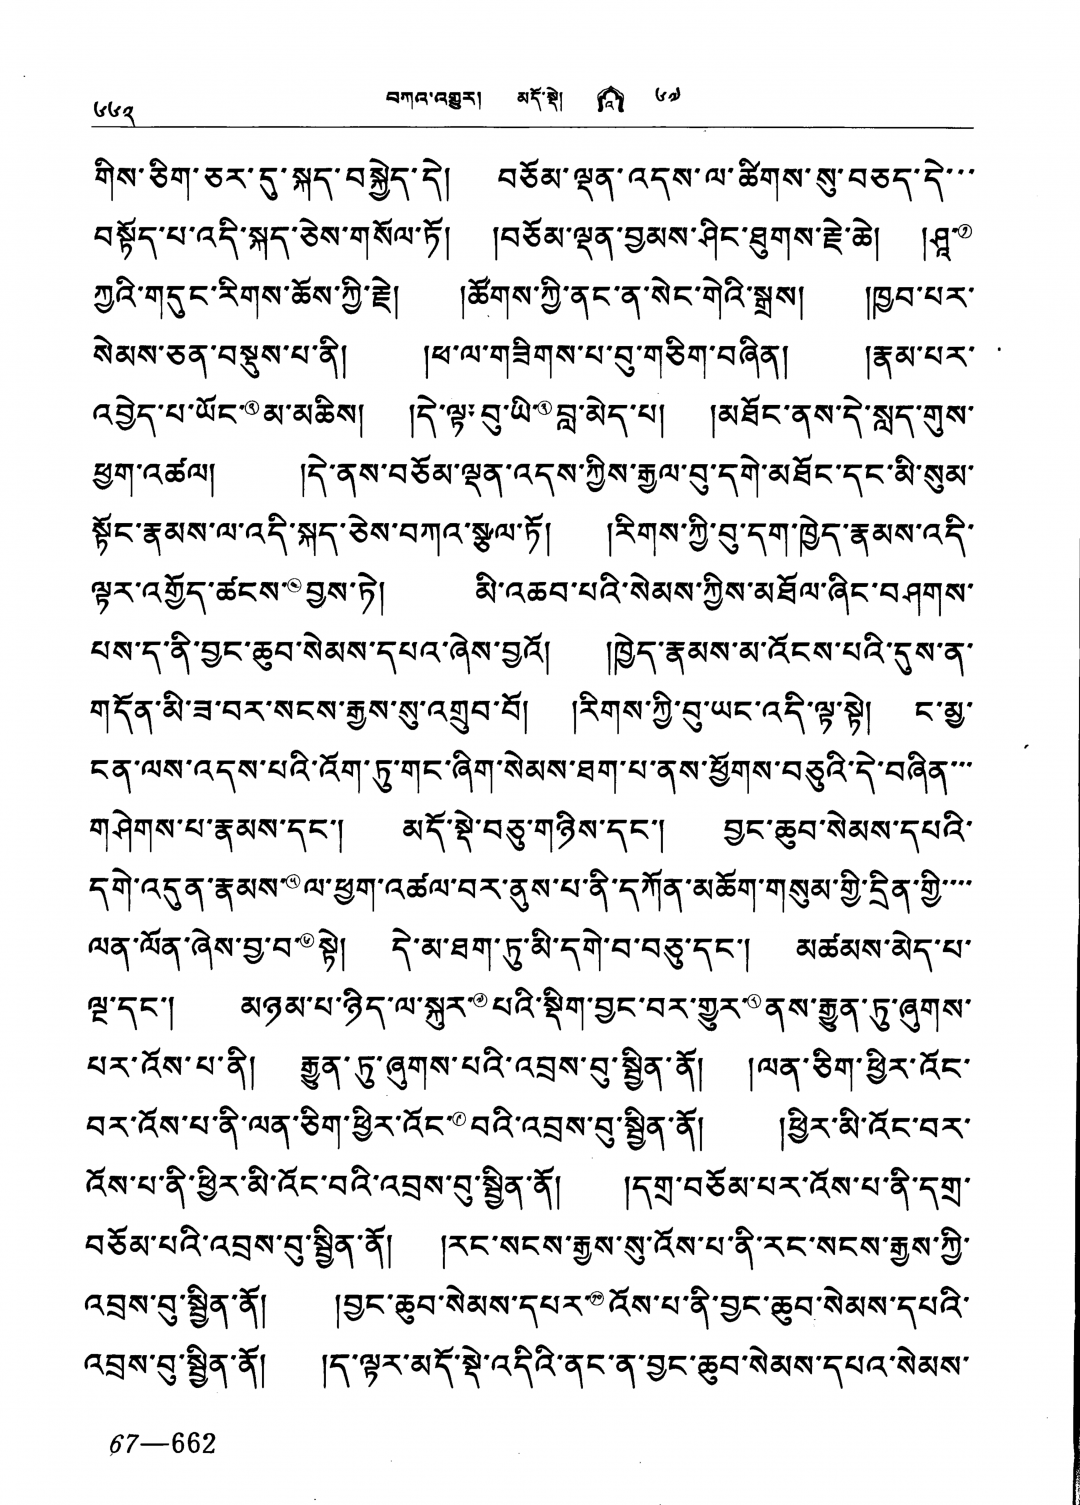 ༦༦༢ བཀའ་འགྱུར། མདོ་སྡེ། འ ༦༧
གིས་ཅིག་ཅར་དུ་སྐད་བསྐྱེད་དེ། བཅོམ་ལྡན་འདས་ལ་ཚིགས་སུ་བཅད་དེ་་་
བསྟོད་པ་འདི་སྐད་ཅེས་གསོལ་ཏོ། །བཅོམ་ལྡན་བྱམས་ཤིང་ཐུགས་རྗེ་ཆེ། །ཤཱ་
ཀྱའི་གདུང་རིགས་ཆོས་ཀྱི་རྗེ། །ཚོགས་ཀྱི་ནང་ན་སེང་གེའི་སྒྲས། །ཁྱབ་པར་
སེམས་ཅན་བསྡུས་པ་ནི། །ཕ་ལ་གཟིགས་པ་བུ་གཅིག་བཞིན། །རྣམ་པར་
འབྱེད་པ་ཡོང་མ་མཆིས། །དེ་ལྟ་བུ་ཡི་བླ་མེད་པ། །མཐོང་ནས་དེ་སླད་གུས་
ཕྱག་འཚལ། །དེ་ནས་བཅོམ་ལྡན་འདས་ཀྱིས་རྒྱལ་བུ་དགེ་མཐོང་དང་མི་སུམ་
སྟོང་རྣམས་ལ་འདི་སྐད་ཅེས་བཀའ་སྩལ་ཏོ། །རིགས་ཀྱི་བུ་དག་ཁྱེད་རྣམས་འདི་
ལྟར་འགྱོད་ཚངས་བྱས་ཏེ། མི་འཆབ་པའི་སེམས་ཀྱིས་མཐོལ་ཞིང་བཤགས་
པས་ད་ནི་བྱང་ཆུབ་སེམས་དཔའ་ཞེས་བྱའོ། །ཁྱེད་རྣམས་མ་འོངས་པའི་དུས་ན་
གདོན་མི་ཟ་བར་སངས་རྒྱས་སུ་འགྲུབ་བོ། །རིགས་ཀྱི་བུ་ཡང་འདི་ལྟ་སྟེ། ང་མྱ་
ངན་ལས་འདས་པའི་འོག་ཏུ་གང་ཞིག་སེམས་ཐག་པ་ནས་ཕྱོགས་བཅུའི་དེ་བཞིན་་་
གཤེགས་པ་རྣམས་དང་། མདོ་སྡེ་བཅུ་གཉིས་དང་། བྱང་ཆུབ་སེམས་དཔའི་
དགེ་འདུན་རྣམས་ལ་ཕྱག་འཚལ་བར་ནུས་པ་ནི་དཀོན་མཆོག་གསུམ་གྱི་དྲིན་གྱི་་་་
ལན་ལོན་ཞེས་བྱ་བ་སྟེ། དེ་མ་ཐག་ཏུ་མི་དགེ་བ་བཅུ་དང་། མཚམས་མེད་པ་
ལྔ་དང་། མཉམ་པ་ཉིད་ལ་སྐུར་པའི་སྡིག་བྱང་བར་གྱུར་ནས་རྒྱུན་ཏུ་ཞུགས་
པར་འོས་པ་ནི། རྒྱུན་ཏུ་ཞུགས་པའི་འབྲས་བུ་སྦྱིན་ནོ། །ལན་ཅིག་ཕྱིར་འོང་
བར་འོས་པ་ནི་ལན་ཅིག་ཕྱིར་འོང་བའི་འབྲས་བུ་སྦྱིན་ནོ། །ཕྱིར་མི་འོང་བར་
འོས་པ་ནི་ཕྱིར་མི་འོང་བའི་འབྲས་བུ་སྦྱིན་ནོ། །དགྲ་བཅོམ་པར་འོས་པ་ནི་དགྲ་
བཅོམ་པའི་འབྲས་བུ་སྦྱིན་ནོ། །རང་སངས་རྒྱས་སུ་འོས་པ་ནི་རང་སངས་རྒྱས་ཀྱི་
འབྲས་བུ་སྦྱིན་ནོ། །བྱང་ཆུབ་སེམས་དཔར་འོས་པ་ནི་བྱང་ཆུབ་སེམས་དཔའི་
འབྲས་བུ་སྦྱིན་ནོ། །ད་ལྟར་མདོ་སྡེ་འདིའི་ནང་ན་བྱང་ཆུབ་སེམས་དཔའ་སེམས་
67—662